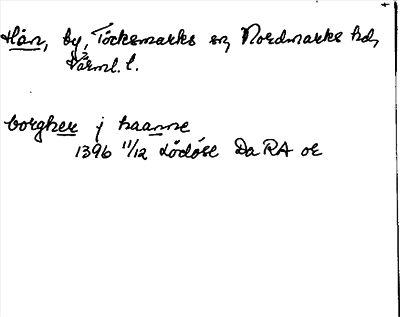 Hån, by, Töcksmarks sn, Nordmarks hd,
Värml. l.
borgher j haanne
1396 11/12 Lödöse Da RA or